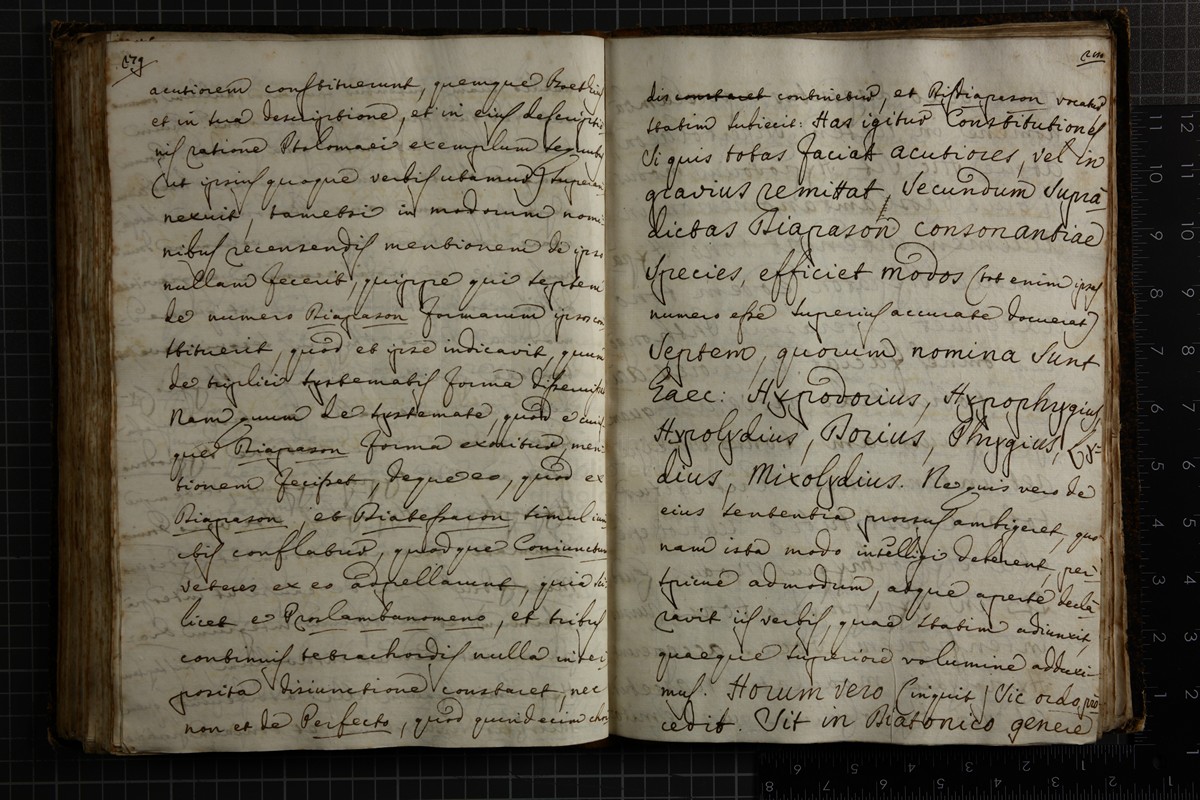 acutiorem constituerunt, quemque Boethius
et in sua descriptione, et in eius descriptio
nis ratione Ptolomaei exemplum sequutus
(ut ipsius quoque verbis utamur) superad
nexuit, tametsi in modorum nomi
nibus recensendis mentionem de ipso
nullam fecerit, quippe qui septem
de numero Diapason formarum ipsos con
stituerit, quod et ipse indicavit, quum
de triplici systematis forma disseruit.
Nam quum de systemate, quod e cuius
que Diapason forma exoritur, men
tionem fecisset, deque eo, quod ex
Diapason, et Diatessaron simul iun
ctis conflatur, quodque Coniunctum
veteres ex eo appellarunt, quia sci
licet e Proslambanomeno, et tribus
continuis tetrachordis nulla inter
posita disiunctione constaret, nec
non et de Perfecto, quod quindecim chor
dis constaret continetur, et Bisdiapason vocatur
statim subiecit: Has igitur Constitutiones
si quis totas faciat acutiores, vel in
gravius remittat, secundum supra
dictas Diapason consonantiae
species, efficiet modos (tot enim ipsos
numero esse superius accurate docuerat)
septem, quorum nomina sunt
haec: Hypodorius, Hypophrygius,
Hypolydius, Dorius, Phrygius, Ly=
dius, Mixolydius. Ne quis vero de
eius sententia prorsus ambigeret, quo
nam ista modo intelligi deberent per
spicue admodum, atque aperte decla
ravit iis verbis, quae statim adiunxit,
quaeque superiore volumine adduxi
mus. Horum vero (inquit) sic ordo pro
cedit. Sit in Diatonico genere